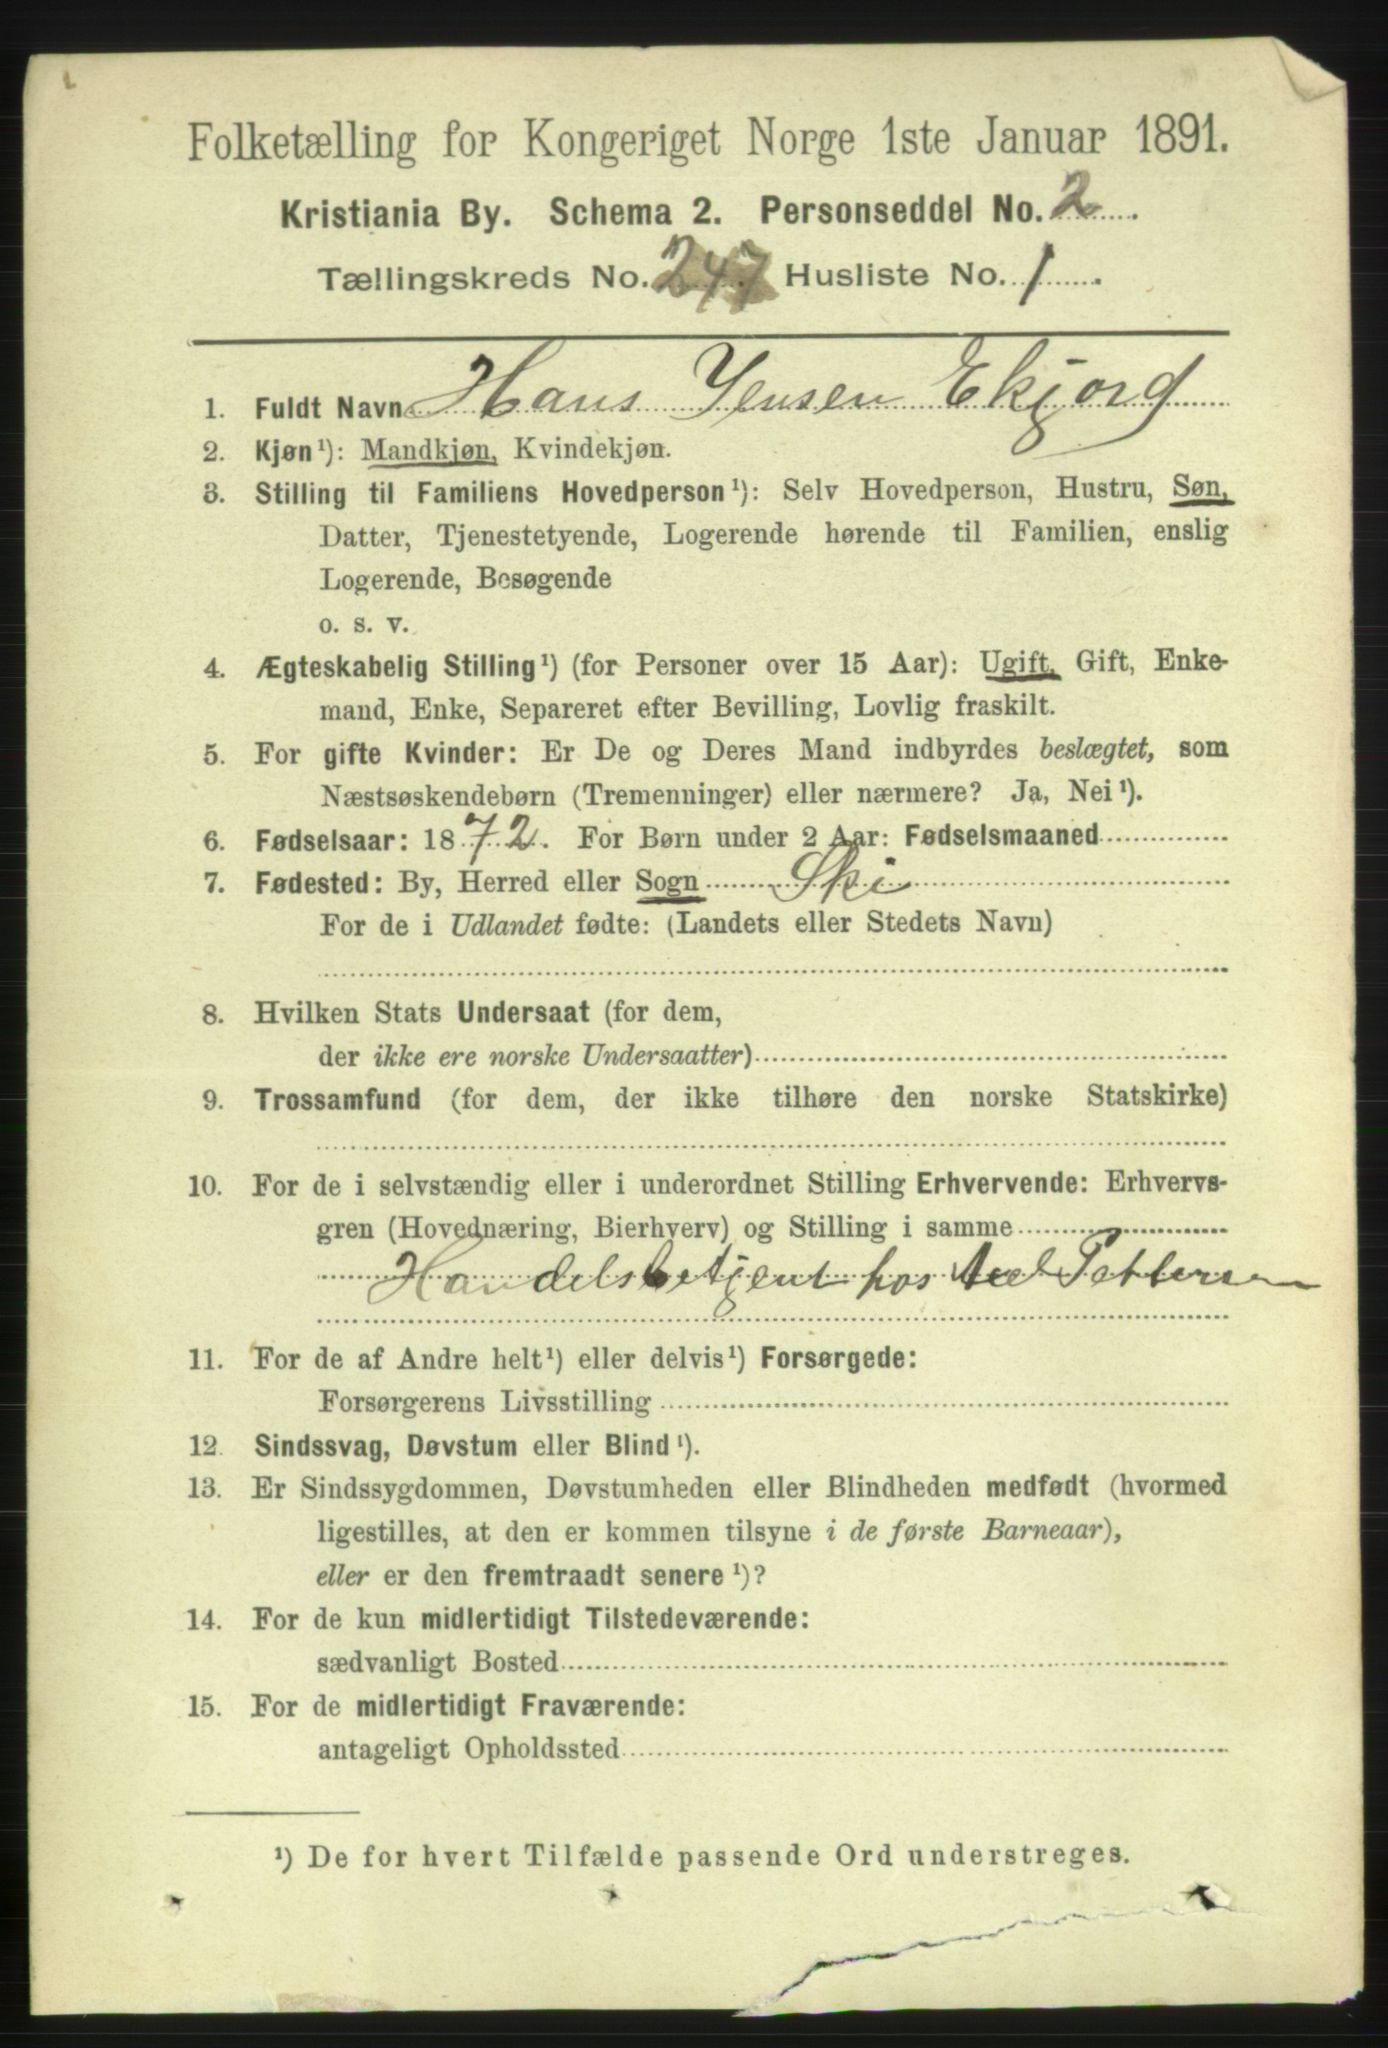 Folketælling for Kongeriget Norge 1ste Januar 1891.
Kristiania By. Schema 2. Personseddel No. 2.
Tællingskreds No. 247 Husliste No. 1.
1. Fuldt Navn Hans Jensen Ekjord
2. Kjøn¹): Mandkjøn, Kvindekjøn.
3. Stilling til Familiens Hovedperson¹): Selv Hovedperson, Hustru, Søn,
Datter, Tjenestetyende, Logerende hørende til Familien, enslig
Logerende, Besøgende
o. s. v.
4. Ægteskabelig Stilling¹) (for Personer over 15 Aar): Ugift, Gift, Enke-
mand, Enke, Separeret efter Bevilling, Lovlig fraskilt.
5. For gifte Kvinder: Er De og Deres Mand indbyrdes beslægtet, som
Næstsøskendebørn (Tremenninger) eller nærmere? Ja, Nei¹).
6. Fødselsaar: 1872. For Børn under 2 Aar: Fødselsmaaned
7. Fødested: By, Herred eller Sogn Ski
For de i Udlandet fødte: (Landets eller Stedets Navn)
8. Hvilken Stats Undersaat (for dem,
der ikke ere norske Undersaatter)
9. Trossamfund (for dem, der ikke tilhøre den norske Statskirke)
10. For de i selvstændig eller i underordnet Stilling Erhvervende: Erhvervs-
gren (Hovednæring, Bierhverv) og Stilling i samme
Handelsbetjent hos Pettersen
11. For de af Andre helt¹) eller delvis¹) Forsørgede:
Forsørgerens Livsstilling
12. Sindssvag, Døvstum eller Blind¹).
13. Er Sindssygdommen, Døvstumheden eller Blindheden medfødt (hvormed
ligestilles, at den er kommen tilsyne i de første Barneaar),
eller er den fremtraadt senere¹)?
14. For de kun midlertidigt Tilstedeværende:
sædvanligt Bosted
15. For de midlertidigt Fraværende:
antageligt Opholdssted
¹) De for hvert Tilfælde passende Ord understreges.